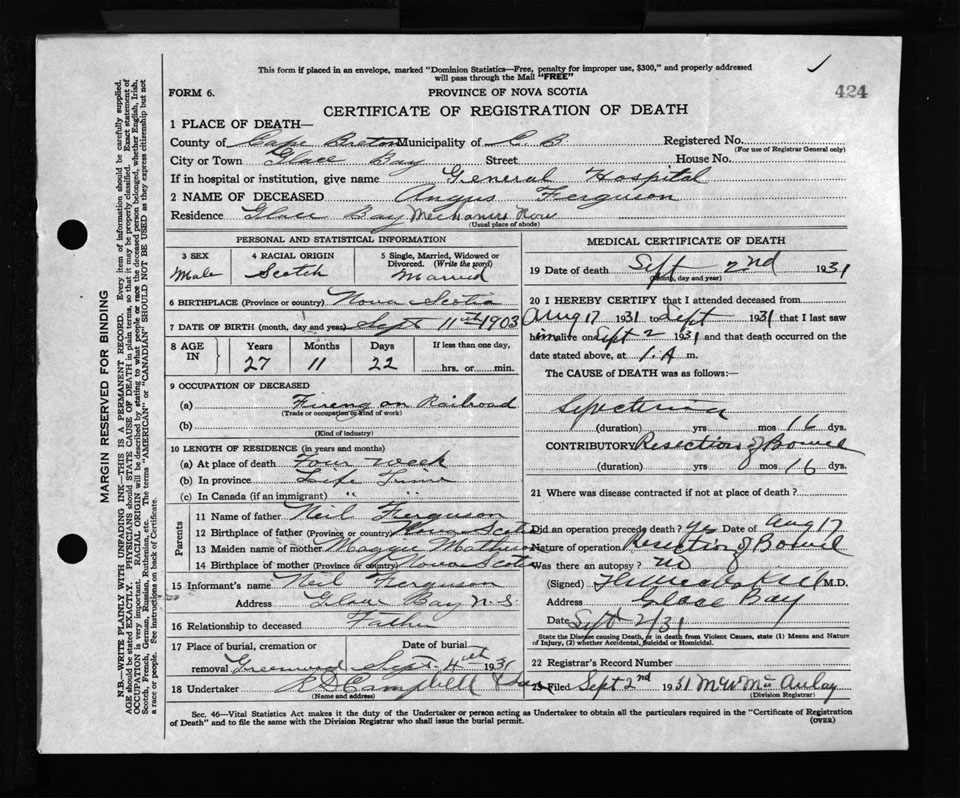 This form if placed in an envelope, marked "Dominion Statistics—Free, penalty for improper use, $300," and properly addressed
will pass through the Mail "FREE"
FORM 6.
PROVINCE OF NOVA SCOTIA
424
CERTIFICATE OF REGISTRATION OF DEATH
1 PLACE OF DEATH—
County of Cape Breton Municipality of C. B. Registered No.
(For use of Registrar General only)
City or Town Glace Bay Street House No.
If in hospital or institution, give name General Hospital
2 NAME OF DECEASED Angus Ferguson
Residence Glace Bay Mechanics Row
(Usual place of abode)
PERSONAL AND STATISTICAL INFORMATION
3 SEX 4 RACIAL ORIGIN 5 Single, Married, Widowed or
Divorced. (Write the word)
Male Scotch Married
6 BIRTHPLACE (Province or country) Nova Scotia
7 DATE OF BIRTH (month, day and year) Sept 11th 1903
8 AGE IN Years Months Days If less than one day,
27 11 22 hrs. or min.
9 OCCUPATION OF DECEASED
(a) Fireng on Railroad
(Trade or occupation or kind of work)
(b)
(Kind of industry)
10 LENGTH OF RESIDENCE (in years and months)
(a) At place of death Four week
(b) In province Life Time
(c) In Canada (if an immigrant) " "
Parents
11 Name of father Neil Ferguson
12 Birthplace of father (Province or country) Nova Scotia
13 Maiden name of mother Maggie
14 Birthplace of mother (Province or country) Nova Scotia
15 Informant's name Neil Ferguson
Address Glace Bay N.S
16 Relationship to deceased Father
17 Place of burial, cremation or Date of burial
removal Greenwood Sept. 4th 1931
18 Undertaker R D Campbell
(Name and address)
MEDICAL CERTIFICATE OF DEATH
19 Date of death Sept 2nd 1931
(Month, day and year)
20 I HEREBY CERTIFY that I attended deceased from
Aug 17 1931 to Sept 1931 that I last saw
him alive on Sept 2 1931 and that death occurred on the
date stated above, at 1.A m.
The CAUSE of DEATH was as follows:—
(duration) yrs mos 16 dys.
CONTRIBUTORY Resection of Bowel
(duration) yrs mos 16 dys.
21 Where was disease contracted if not at place of death?
Did an operation precede death? Yes Date of Aug 17
Nature of operation Resection of Bowel
Was there an autopsy? no
(Signed) M.D.
Address Glace Bay
Date Sept 2/31
State the Disease causing Death, or in death from Violent Causes, state (1) Means and Nature
of Injury, (2) whether Accidental, Suicidal or Homicidal.
22 Registrar's Record Number
23 Filed Sept 2nd 1931. M W MacAulay
(Division Registrar)
Sec. 46—Vital Statistics Act makes it the duty of the Undertaker or person acting as Undertaker to obtain all the particulars required in the "Certificate of Registration
of Death" and to file the same with the Division Registrar who shall issue the burial permit.
(OVER)
MARGIN RESERVED FOR BINDING
N.B.—WRITE PLAINLY WITH UNFADING INK—THIS IS A PERMANENT RECORD. Every item of information should be carefully supplied.
AGE should be stated EXACTLY. PHYSICIANS should STATE CAUSE OF DEATH in plain terms, so that it may be properly classified. Exact statement of
OCCUPATION is very important. RACIAL ORIGIN will be described by stating to what people or race the deceased person belonged, whether English, Irish,
Scotch, French, German, Russian, Ruthenian, etc. The terms "AMERICAN" or "CANADIAN" SHOULD NOT BE USED as they express citizenship but not
a race or people. See instructions on back of Certificate.